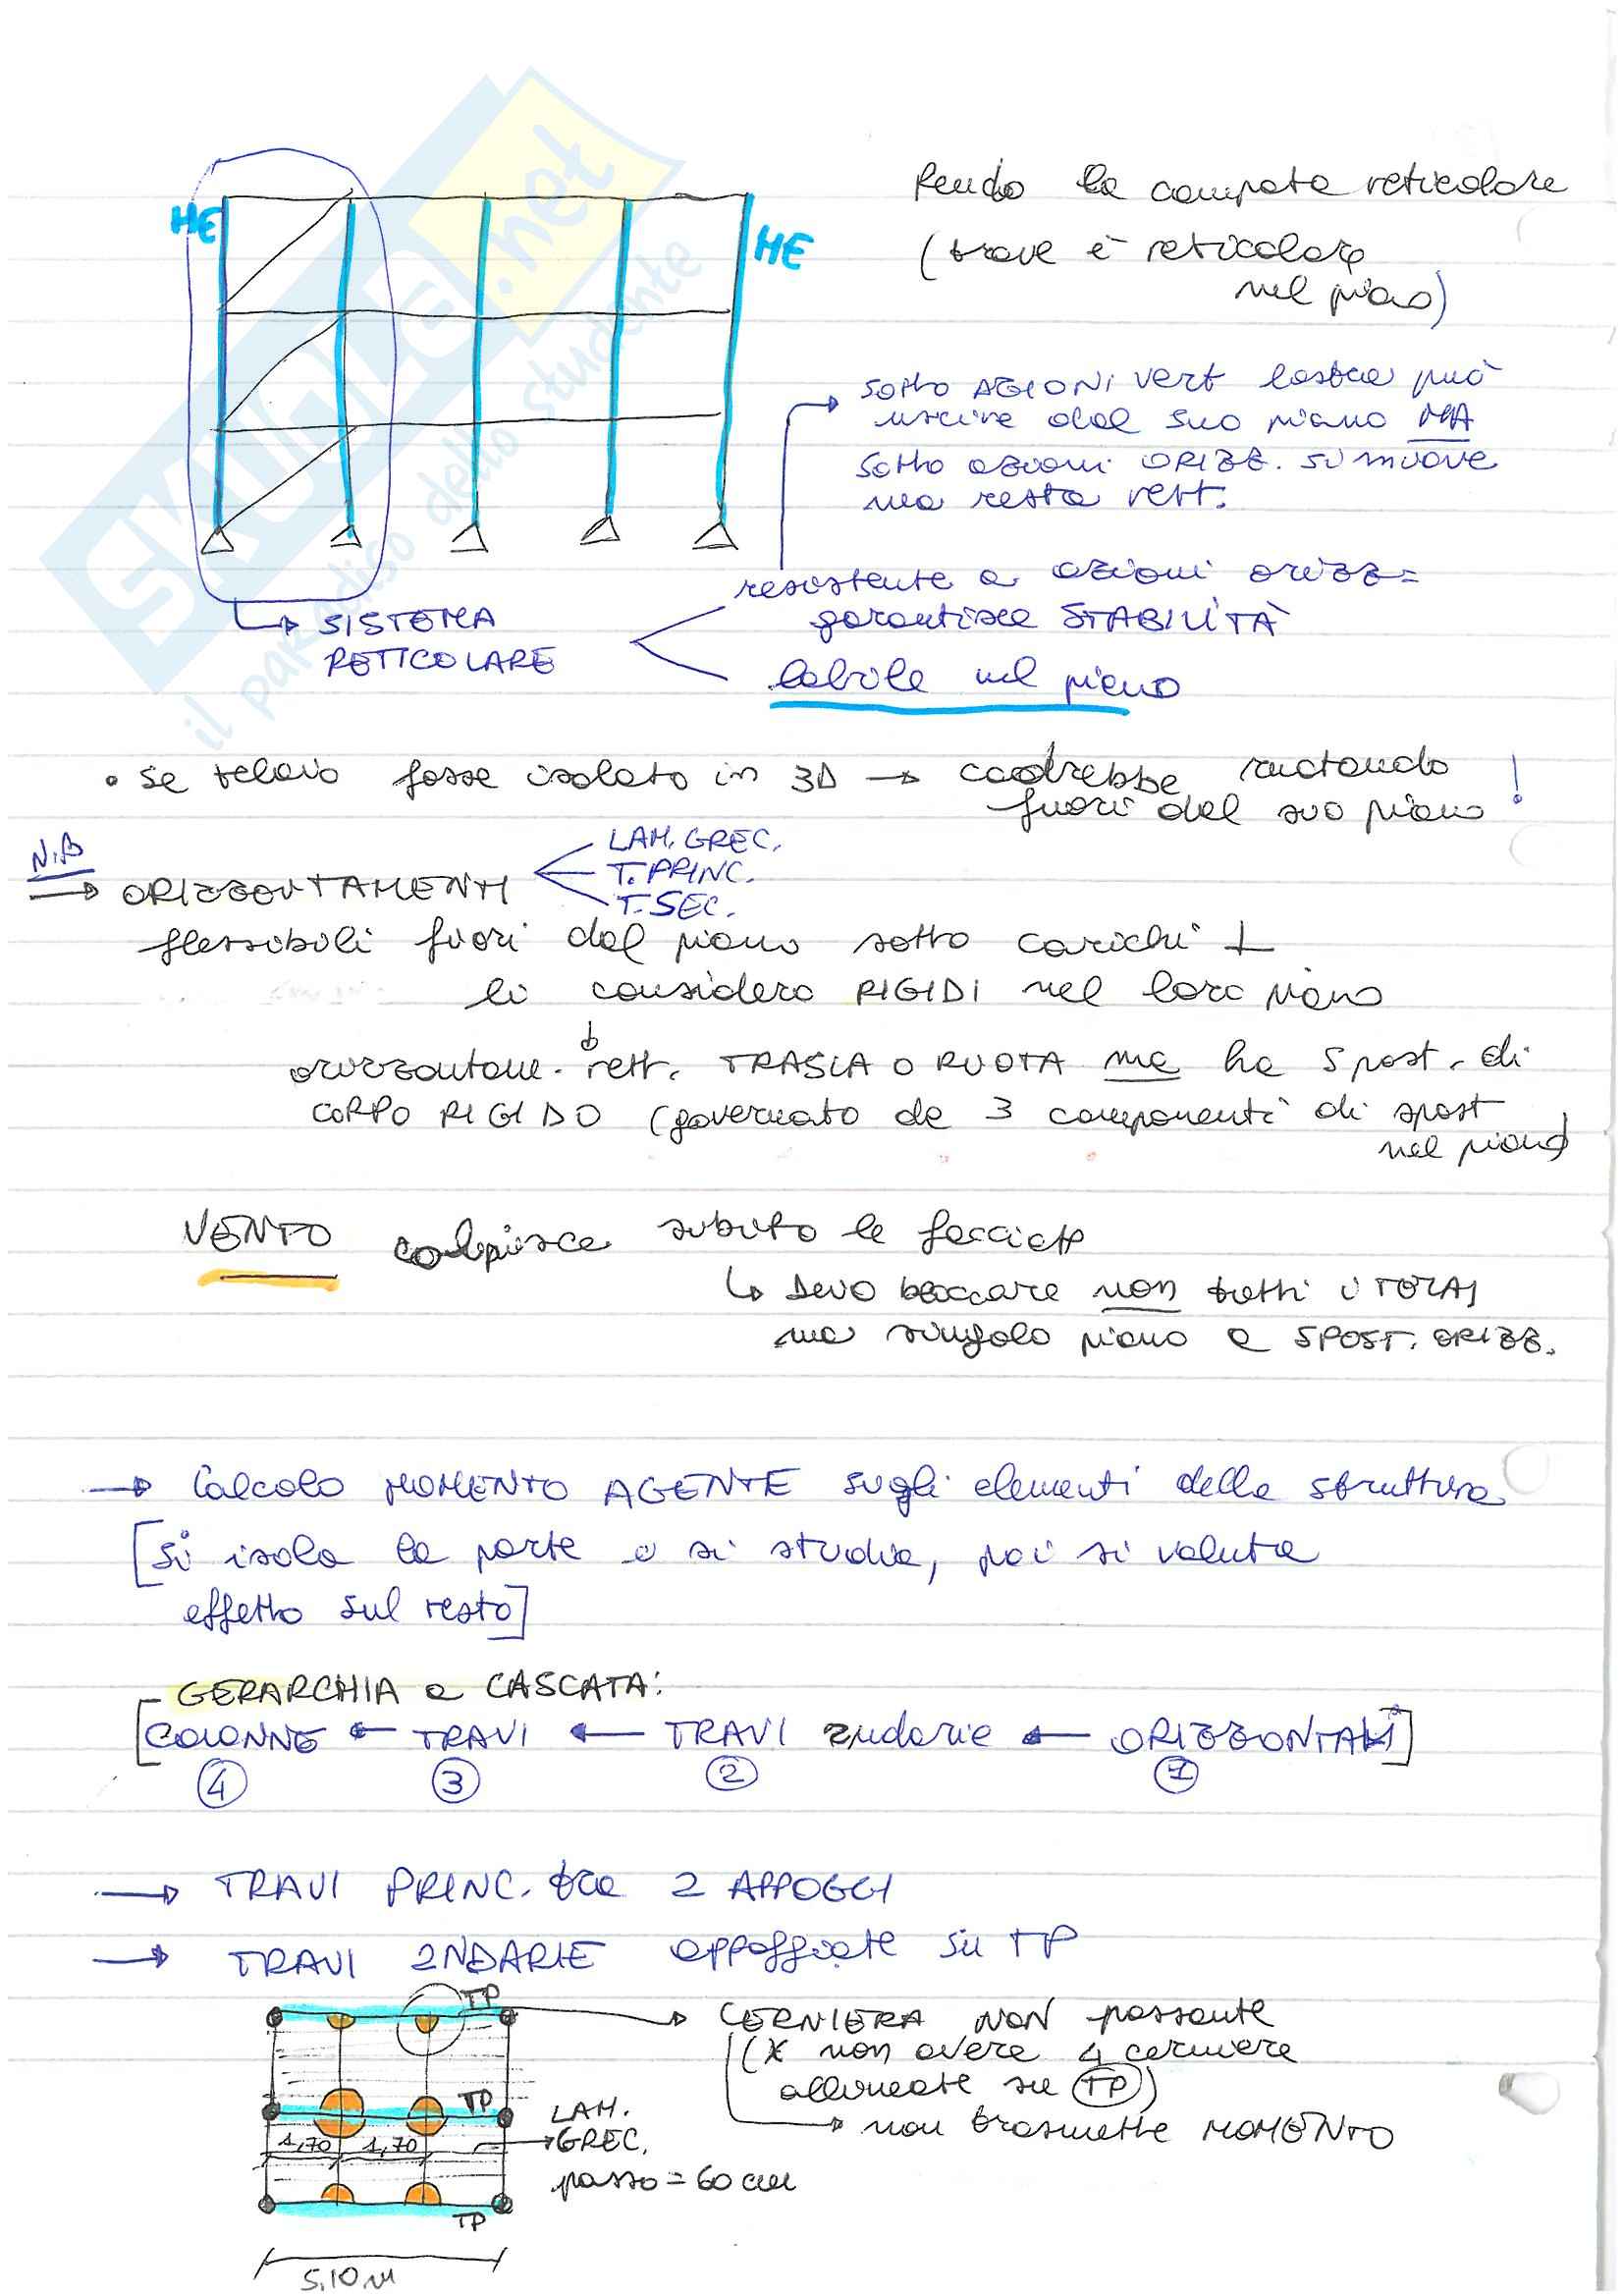 Rendo la campata reticolare
(trave è reticolare
nel piano)
HE
HE
sotto AZIONI vert lastra può
uscire dal suo piano MA
sotto azioni ORIZZ. si muove
ma resta rett.
resistente a azioni orizz =
garantisce STABILITÀ
SISTEMA
RETICOLARE
labile nel piano
• se telaio fosse isolato in 3D → cadrebbe ruotando
fuori dal suo piano !
N.B
→ ORIZZONTAMENTI
LAM. GREC.
T. PRINC.
T. SEC.
flessibili fuori dal piano sotto carichi ⊥
li considero RIGIDI nel loro piano
orizzontam. rett. TRASLA O RUOTA ma ha spost. di
CORPO RIGIDO (governato da 3 componenti di spost
nel piano)
VENTO colpisce subito le facciate
↳ Devo bloccare non tutti i TELAI
ma singolo piano a SPOST. ORIZZ.
→ Calcolo MOMENTO AGENTE sugli elementi della struttura
[Si isola la parte e si studia, poi si valuta
effetto sul resto]
GERARCHIA a CASCATA:
[COLONNE ← TRAVI ← TRAVI 2ndarie ← ORIZZONTALI]
4 3 2 1
→ TRAVI PRINC. tra 2 APPOGGI
→ TRAVI 2NDARIE appoggiate su TP
TP
CERNIERA NON passante
(x non avere 4 cerniere
allineate su TP)
→ non trasmette MOMENTO
TP
LAM.
GREC.
passo = 60 cm
1,70 1,70
TP
5,10 m
SKUOLA.net
il paradiso dello studente